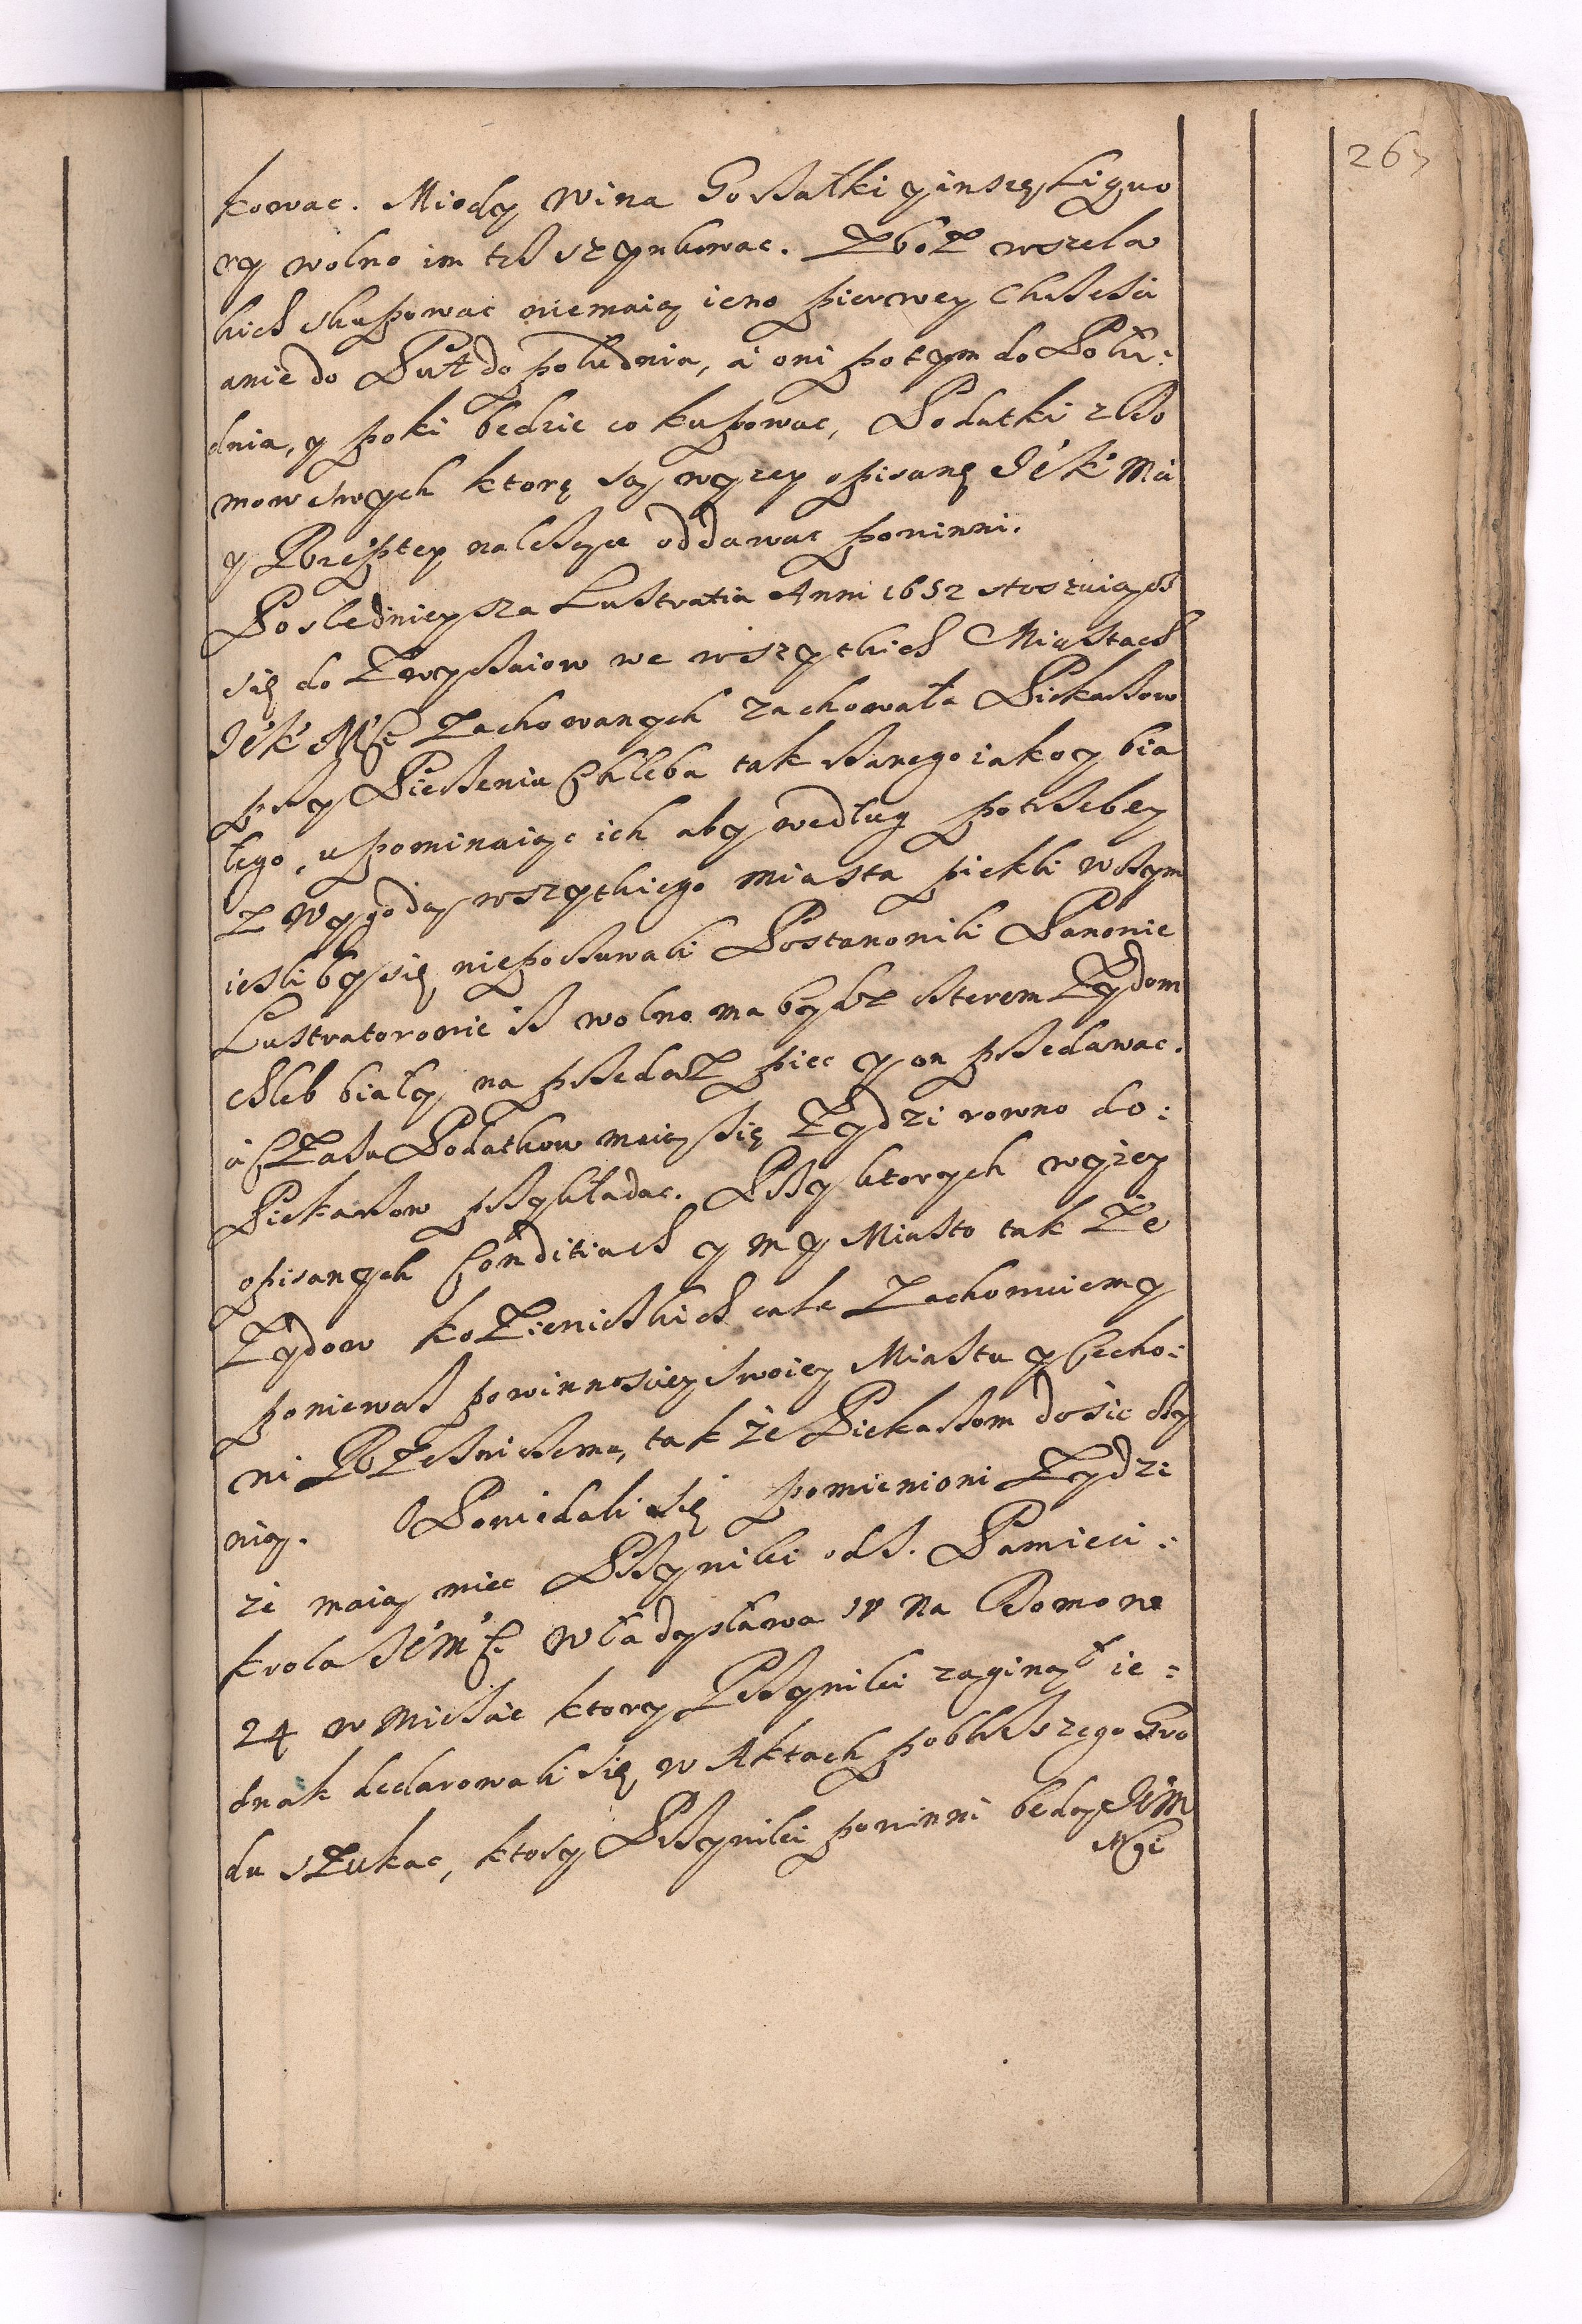 267
kowac. Miody Wina Gorzałki y inszę Liquo
ry wolno im tesz szynkowac. Zboz wszela
kich skupowac niemaią ieno pierwey Chrzesci
anie do Puł do południa, á oni potym do Połu:
dnia, y poki będzie co kupowac, Podatki z Do
mow swych ktorę są wyzey opisanę Jé Kr Mci
y Rzeptey nalezące oddawac powinni.
Posledniejsza Lustratia Anni 1652 stosuiąc
się do Zwyczaiow we wszytkich Miastach
Jé K Mśc Zachowanych zachowała Piekarzow
przy Pieczeniu Chleba tak rzanego iako y bia
łego, upominaiąc ich aby według potrzeby
Z wygodą wszytkiego miasta piekli w czym
iesliby się niepoczuwali Postanowili Panowie
Lustratorowie isz wolno ma bydz czterem Zydom
chleb biały na przedasz piec y on przedawac.
á Czasu Podatkow maią się Zydzi rowno do:
Piekarzow przykładac. Przy ktorych wyzey
opisanych Conditiach y my Miasto tak Ze
Zydow koZienickich cale Zachowuiemy
poniewasz powinnosciey swoiey Miastu y Cecho:
wi Rzeznickiemu, takze Piekarzom dosic czy
nią. Powiedali się pomienioni Zydzi
ze maią miec Przywiley od S. Pamięci:
krola Jé M Śc Władysława IV Na Domow
24 w Miescie ktory Przywiley zaginął ie:
dnak declarowali się w Aktach poblisszego Gro
du sZukac, ktory Przywiley powinni będą Jch M
Mci